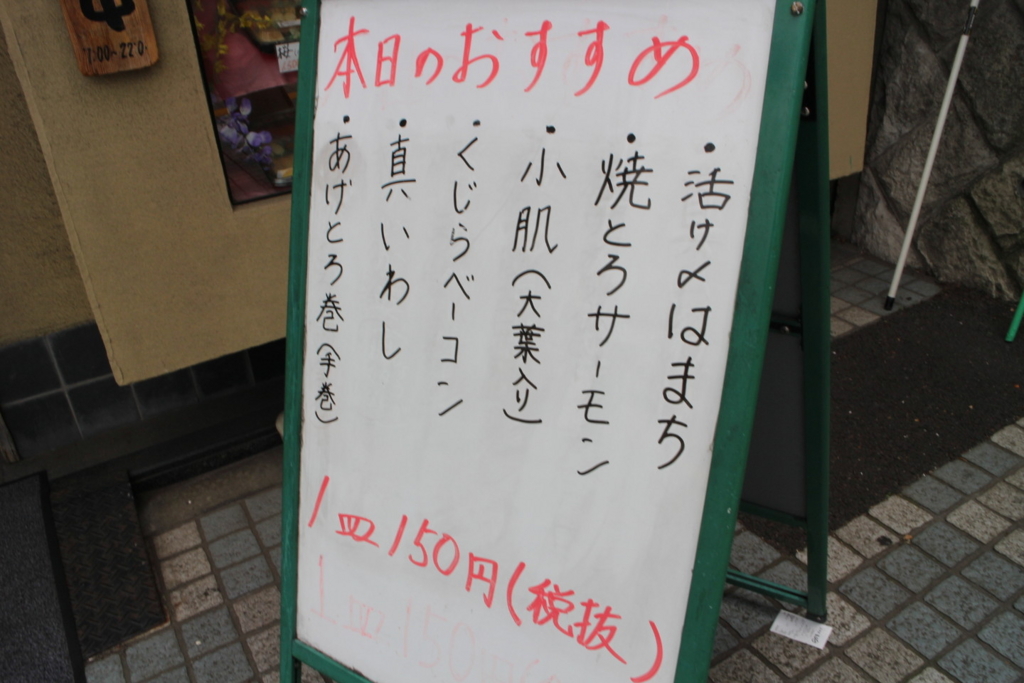 本日のおすすめ
・活け〆はまち
・焼とろサーモン
・小肌(大葉入り)
・くじらベーコン
・真いわし
・あげとろ巻(手巻)
1皿150円(税抜)